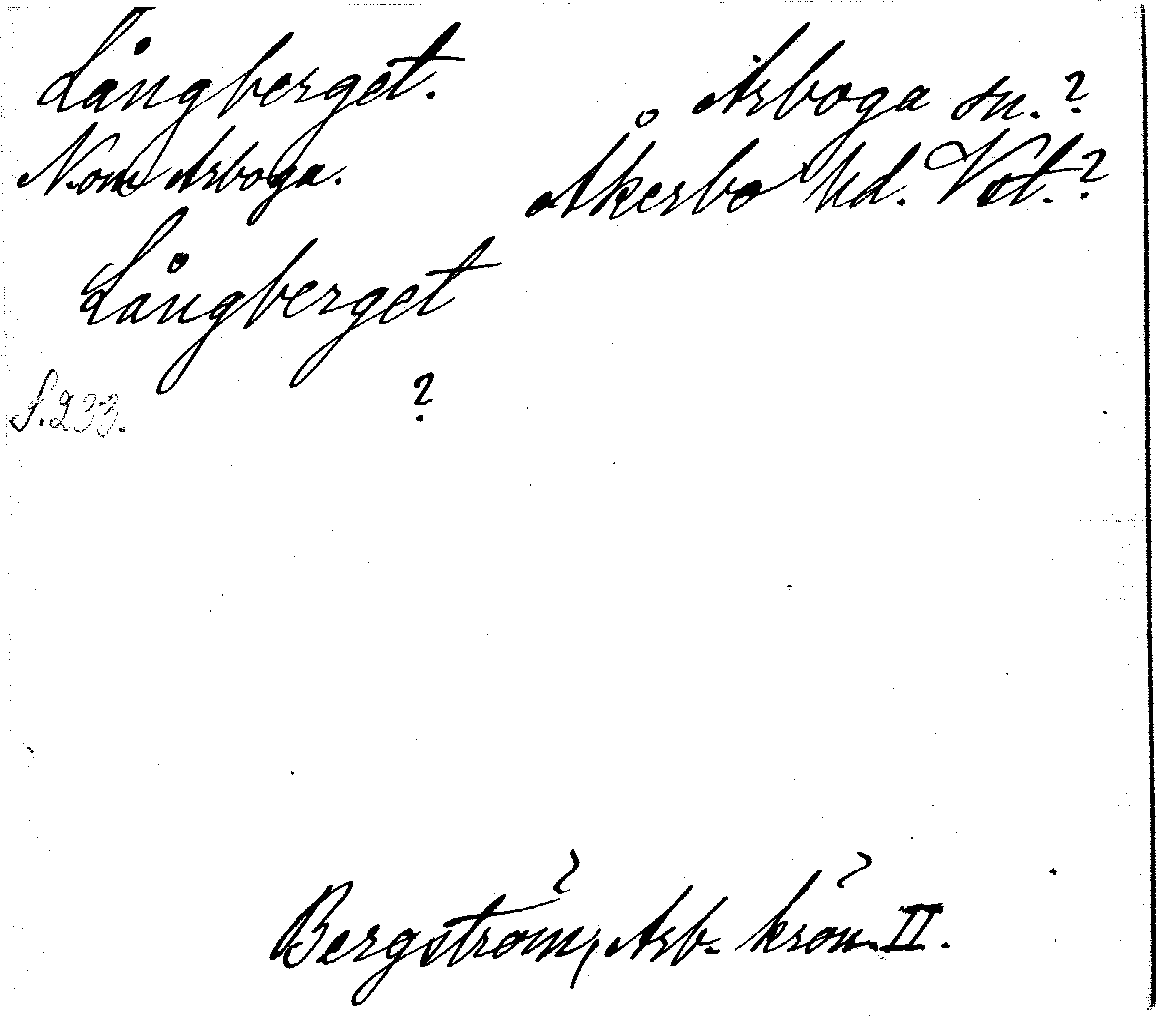 Långberget.
Arboga sn.?
N. om Arboga.
Åkerbo hd. Vstl.?
Långberget
S. 233.
?
Bergström, Arb. krön. II.